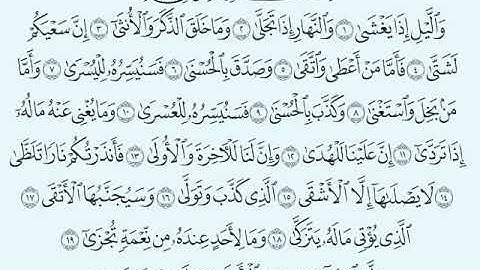 وَٱلَّيْلِ إِذَا يَغْشَىٰ ١ وَٱلنَّهَارِ إِذَا تَجَلَّىٰ ٢ وَمَا خَلَقَ ٱلذَّكَرَ وَٱلْأُنثَىٰٓ ٣ إِنَّ سَعْيَكُمْ
لَشَتَّىٰ ٤ فَأَمَّا مَنْ أَعْطَىٰ وَٱتَّقَىٰ ٥ وَصَدَّقَ بِٱلْحُسْنَىٰ ٦ فَسَنُيَسِّرُهُۥ لِلْيُسْرَىٰ ٧ وَأَمَّا
مَنۢ بَخِلَ وَٱسْتَغْنَىٰ ٨ وَكَذَّبَ بِٱلْحُسْنَىٰ ٩ فَسَنُيَسِّرُهُۥ لِلْعُسْرَىٰ ١٠ وَمَا يُغْنِى عَنْهُ مَالُهُۥٓ
إِذَا تَرَدَّىٰٓ ١١ إِنَّ عَلَيْنَا لَلْهُدَىٰ ١٢ وَإِنَّ لَنَا لَلْـَٔاخِرَةَ وَٱلْأُولَىٰ ١٣ فَأَنذَرْتُكُمْ نَارًا تَلَظَّىٰ
١٤ لَا يَصْلَىٰهَآ إِلَّا ٱلْأَشْقَى ١٥ ٱلَّذِى كَذَّبَ وَتَوَلَّىٰ ١٦ وَسَيُجَنَّبُهَا ٱلْأَتْقَى ١٧
ٱلَّذِى يُؤْتِى مَالَهُۥ يَتَزَكَّىٰ ١٨ وَمَا لِأَحَدٍ عِندَهُۥ مِن نِّعْمَةٍ تُجْزَىٰٓ ١٩